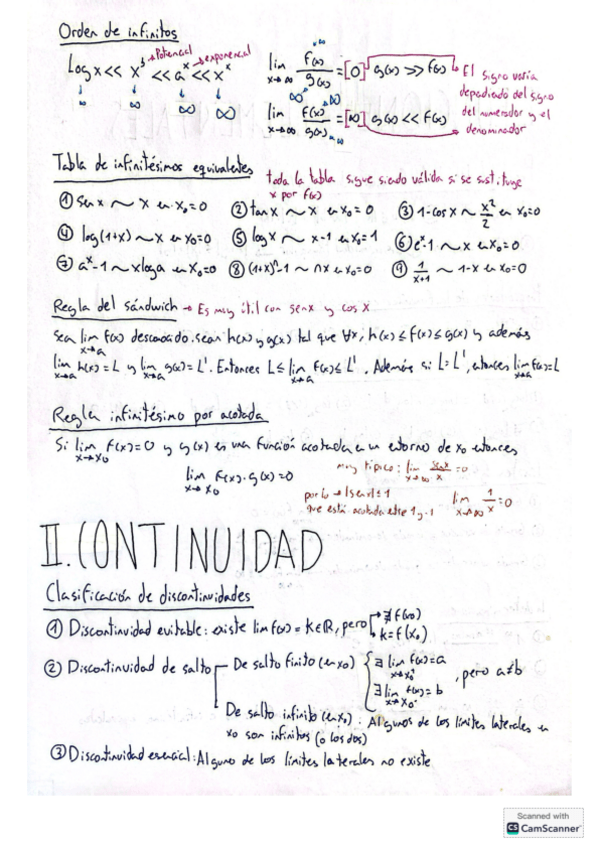 Orden de infinitos
Potencial exponencial
log x << x^b << a^x << x^x
∞ ∞ ∞ ∞
lim x→∞ f(x)/g(x) = [0] g(x) >> f(x)
lim x→∞ f(x)/g(x) = [∞] g(x) << f(x)
El signo varía
dependiendo del signo
del numerador y el
denominador
Tabla de infinitésimos equivalentes
toda la tabla sigue siendo válida si se sustituye
x por f(x)
① sen x ~ x en x₀=0 ② tan x ~ x en x₀=0 ③ 1-cos x ~ x²/2 en x₀=0
④ log(1+x) ~ x en x₀=0 ⑤ log x ~ x-1 en x₀=1 ⑥ e^x-1 ~ x en x₀=0
⑦ a^x-1 ~ x log a en x₀=0 ⑧ (1+x)^n-1 ~ nx en x₀=0 ⑨ 1/(x+1) ~ 1-x en x₀=0
Regla del sándwich → Es muy útil con sen x y cos x
Sea lim x→a f(x) desconocido. sean h(x) y g(x) tal que ∀x, h(x) ≤ f(x) ≤ g(x) y además
lim x→a h(x)=L y lim x→a g(x)=L'. Entonces L ≤ lim x→a f(x) ≤ L'. Además si L=L', entonces lim x→a f(x)=L
Regla infinitésimo por acotada
Si lim x→x₀ f(x)=0 y g(x) es una función acotada en un entorno de x₀ entonces
lim x→x₀ f(x)·g(x)=0
muy típico: lim x→∞ sen x/x =0
por lo → |sen x| ≤ 1
que está acotada entre 1 y -1
lim x→∞ 1/x =0
II. CONTINUIDAD
Clasificación de discontinuidades
① Discontinuidad evitable: existe lim f(x) = k∈ℝ, pero ∄ f(x₀)
k=f(x₀)
② Discontinuidad de salto De salto finito (en x₀) { ∃ lim x→x₀⁺ f(x)=a
∃ lim x→x₀⁻ f(x)=b , pero a≠b
De salto infinito (en x₀): Algunos de los límites laterales en
x₀ son infinitos (ó los dos)
③ Discontinuidad esencial: Alguno de los límites laterales no existe
Scanned with
CS CamScanner